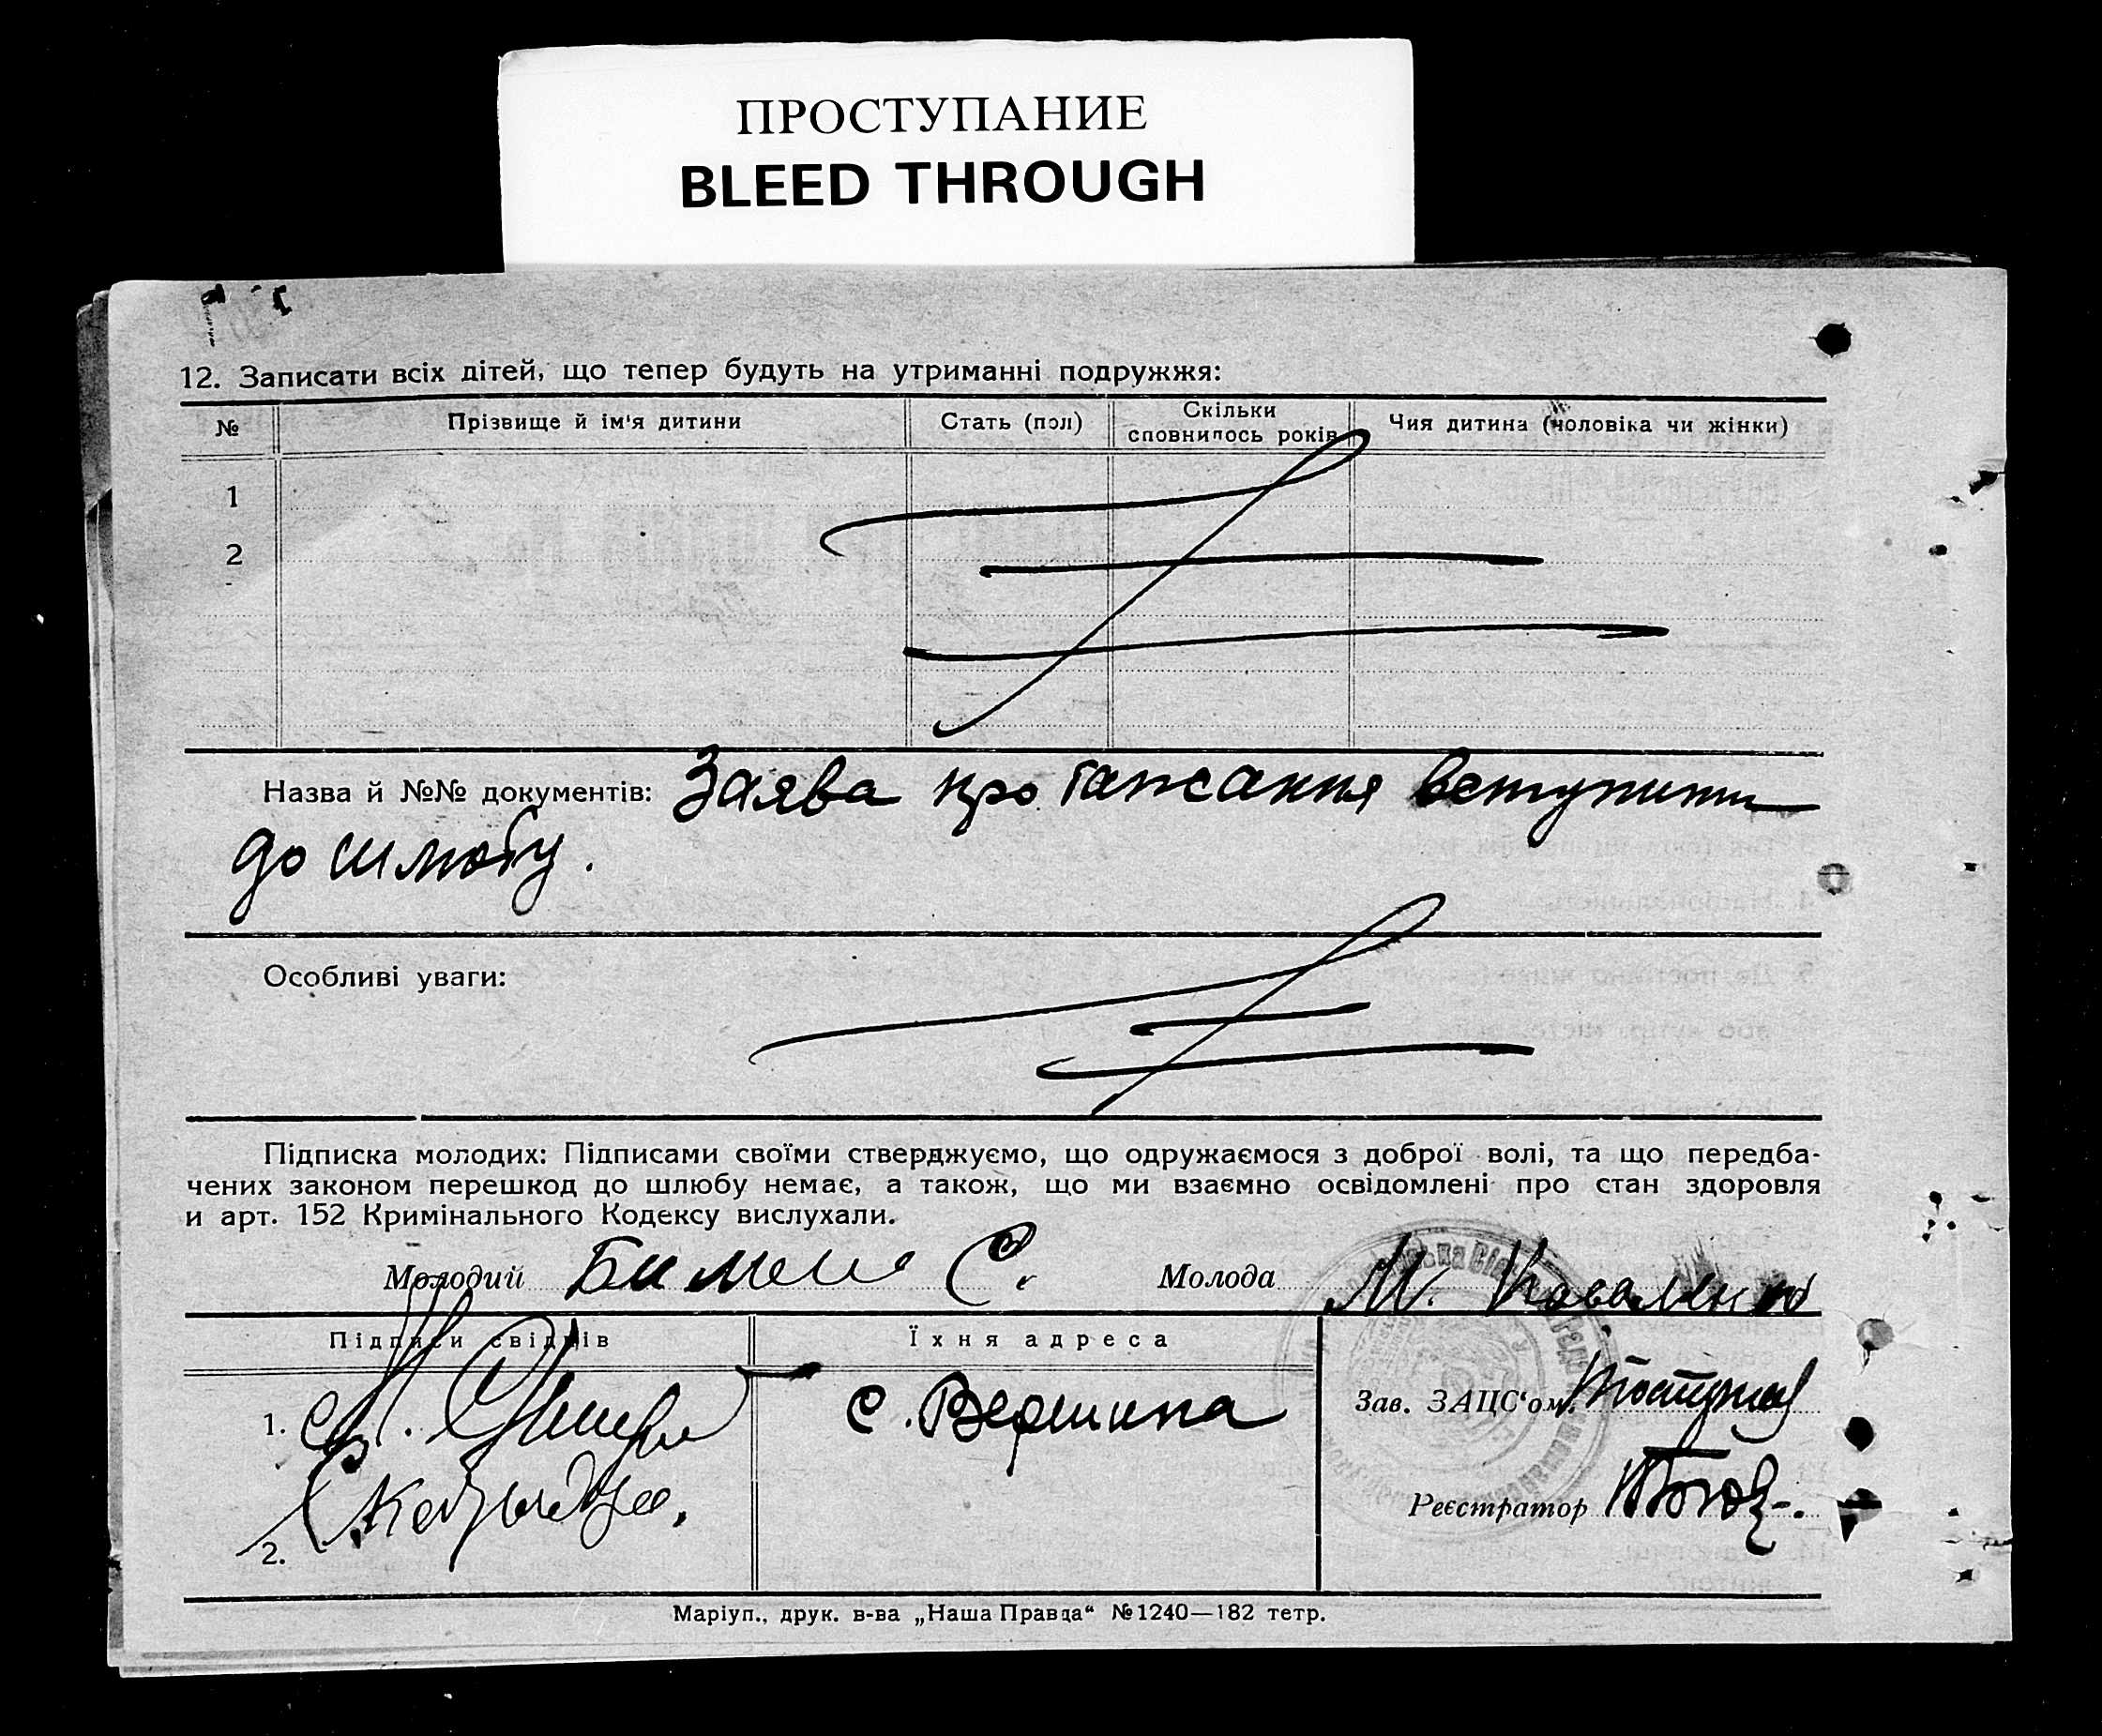 ПРОСТУПАНИЕ
BLEED THROUGH
12. Записати всіх дітей, що тепер будуть на утриманні подружжя:
№ Прізвище й ім'я дитини Стать (пол) Скільки сповнилось років Чия дитина (чоловіка чи жінки)
1
2
Назва й №№ документів: Заява про бажання вступити
до шлюбу.
Особливі уваги:
Підписка молодих: Підписами своїми стверджуємо, що одружаємося з доброї волі, та що передба-
чених законом перешкод до шлюбу немає, а також, що ми взаємно освідомлені про стан здоровля
и арт. 152 Кримінального Кодексу вислухали.
Молодий С. Молода М. Коваленко
Підписи свідків Їхня адреса
1. с. Вершина Зав. ЗАЦС'ом
Реєстратор
2.
Маріуп., друк. в-ва „Наша Правда“ №1240—182 тетр.